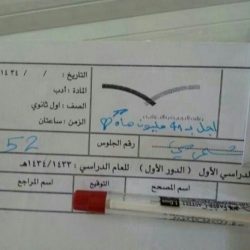 التاريخ : / / ١٤٣٤
المادة : أدب
الصف : أول ثانوي
الزمن : ساعتان
اجل بـ 48 مليون هاه
رقم الجلوس
52
الدراسي الأول ( الدور الأول ) للعام الدراسي : ١٤٣٤/١٤٣٣هـ
اسم المصحح
التوقيع
اسم المراجع